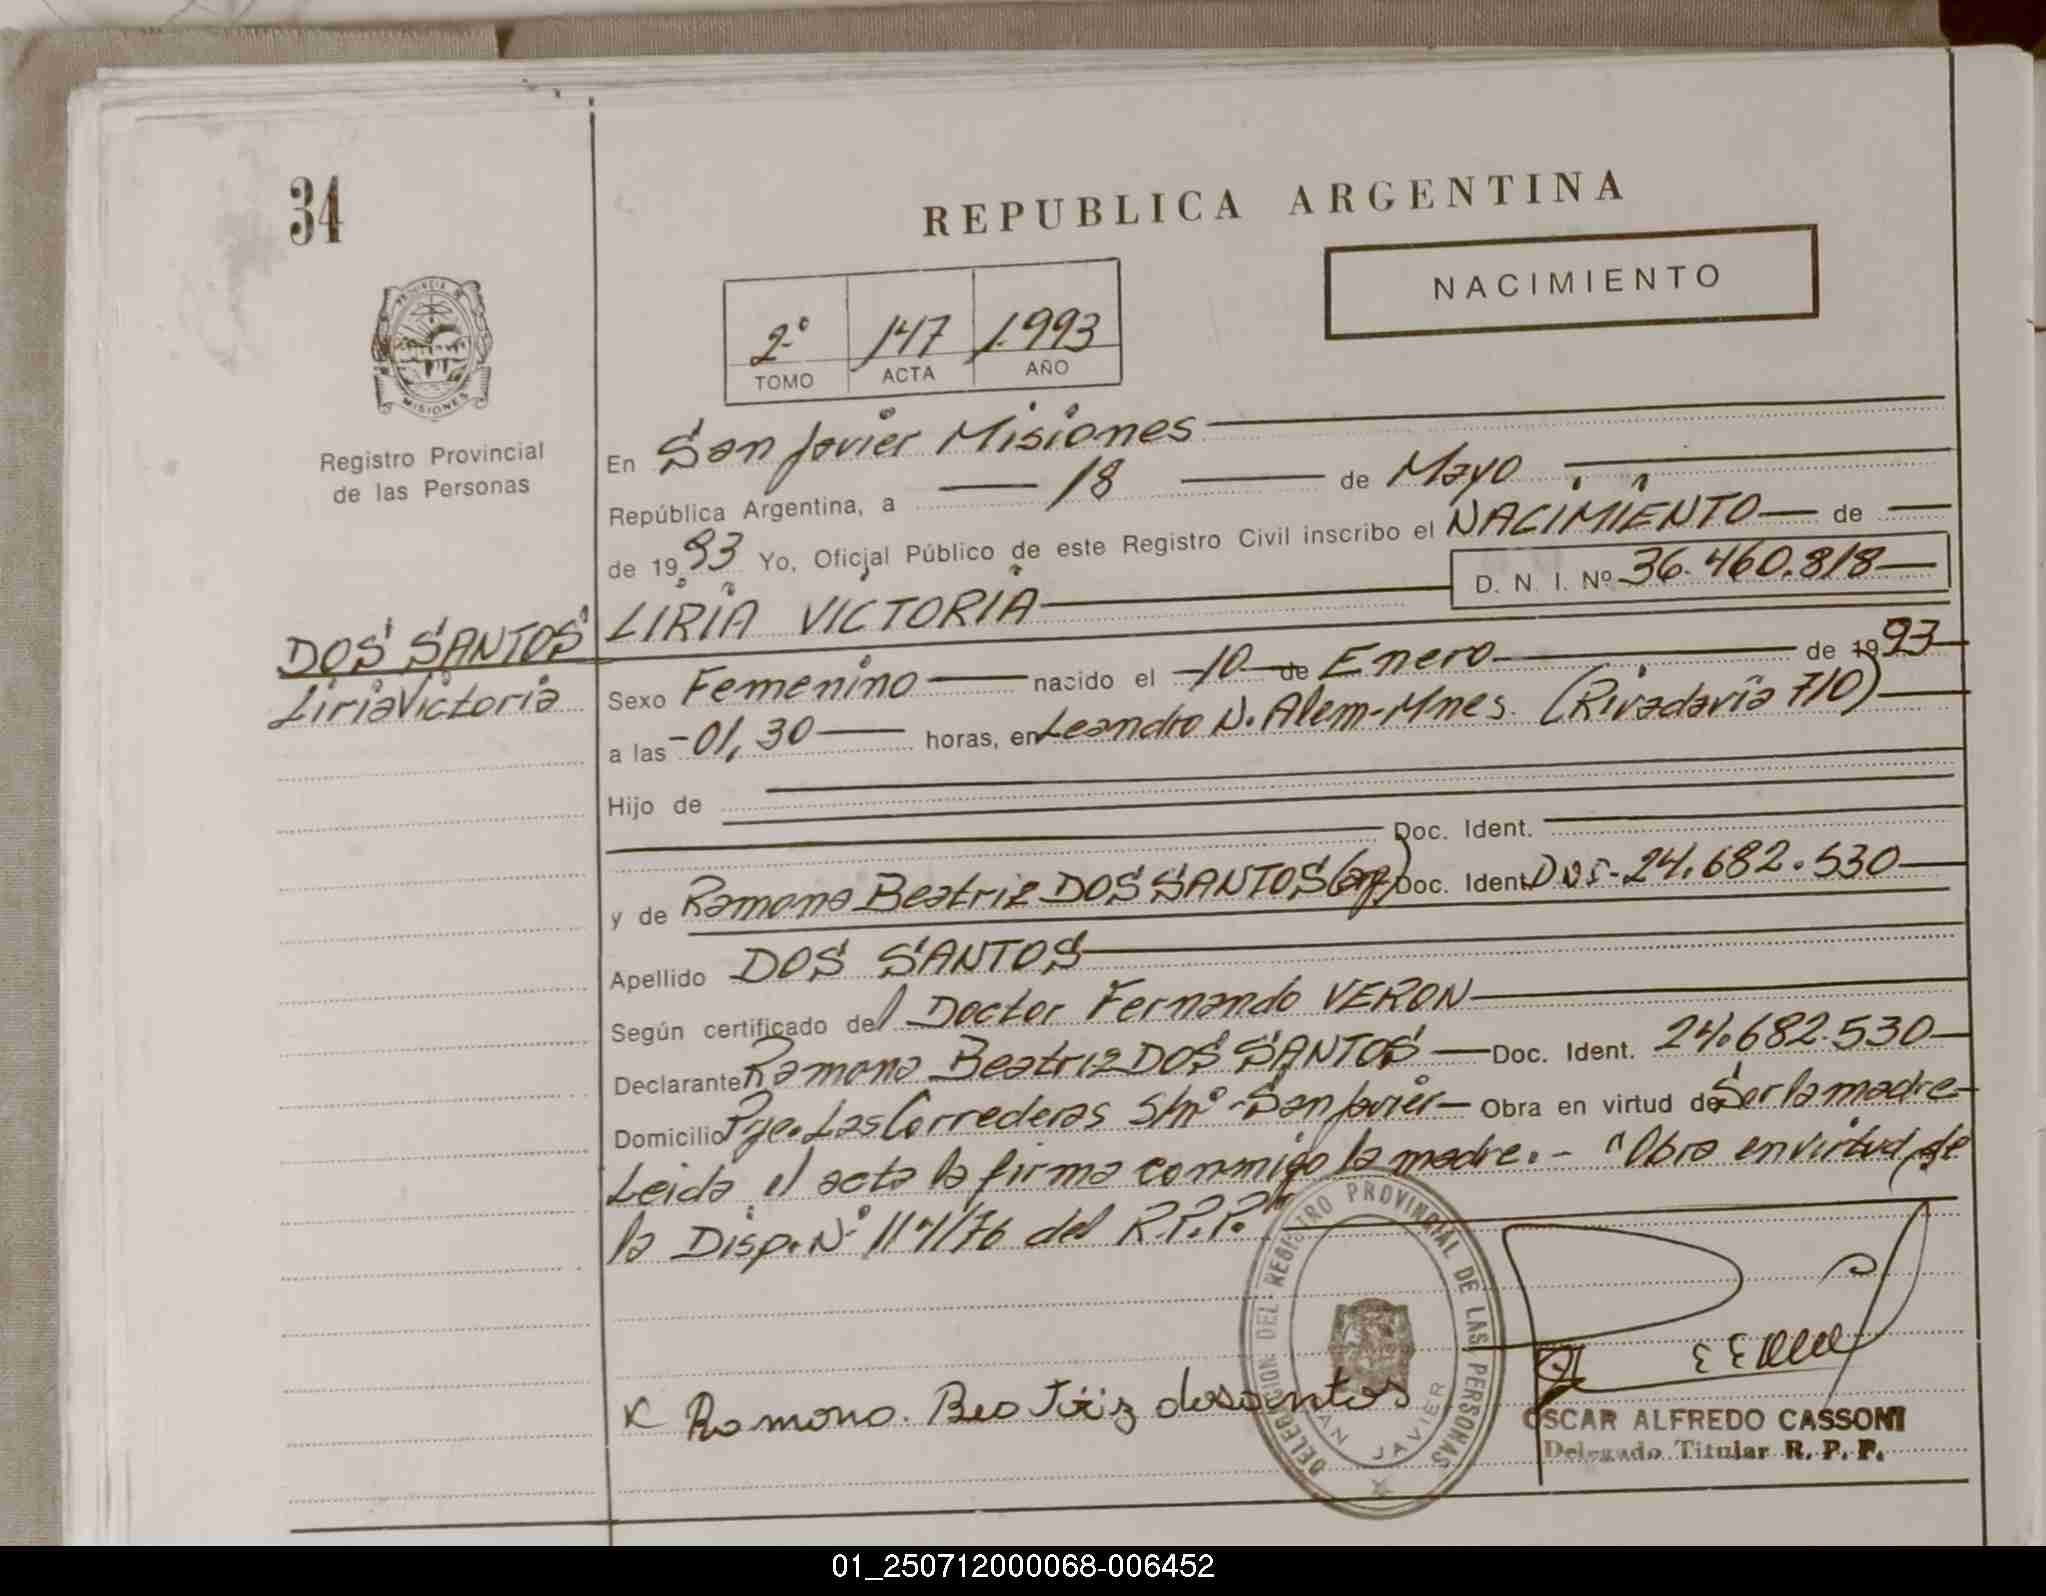 34
REPUBLICA ARGENTINA
NACIMIENTO
2º 147 1.993
TOMO ACTA AÑO
PROVINCIA DE
MISIONES
Registro Provincial
de las Personas
En San Javier Misiones
República Argentina, a 18 de Mayo
de 1993 Yo, Oficial Público de este Registro Civil inscribo el NACIMIENTO de
D. N. I. Nº 36.460.818
LIRIA VICTORIA
DOS SANTOS
Liria Victoria
Sexo Femenino nacido el -10- de Enero de 1993
a las -01,30 horas, en Leandro N. Alem-Mnes. (Rivadavia 710)
Hijo de
Doc. Ident.
y de Ramona Beatriz DOS SANTOS (arg) Doc. Ident. 24.682.530
Apellido DOS SANTOS
Según certificado del Doctor Fernando VERON
Declarante Ramona Beatriz DOS SANTOS Doc. Ident. 24.682.530
Domicilio Pje. Las Correderas S/nº - San Javier Obra en virtud de Ser la madre
Leida el acta la firma conmigo la madre.- "Obra en virtud de
la Disp. Nº 114/76 del R.P.P."
DELEGACION DEL REGISTRO PROVINCIAL DE LAS PERSONAS
SAN JAVIER
Ramona. Beatriz dosantos
OSCAR ALFREDO CASSONI
Delegado Titular R. P. P.
01_250712000068-006452